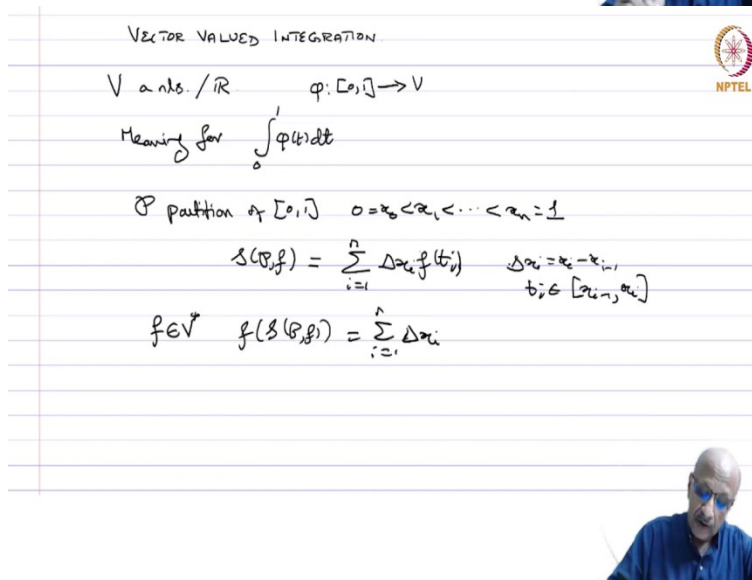 VECTOR VALUED INTEGRATION
V a nls. / ℝ φ: [0,1] → V
NPTEL
Meaning for ∫₀¹ φ(t)dt
𝒫 partition of [0,1] 0 = x₀ < x₁ < ··· < xₙ = 1
S(𝒫,f) = Σᵢ₌₁ⁿ Δxᵢ f(tᵢ) Δxᵢ = xᵢ - xᵢ₋₁
tᵢ ∈ [xᵢ₋₁, xᵢ]
f ∈ V* f(S(𝒫,f)) = Σᵢ₌₁ⁿ Δxᵢ